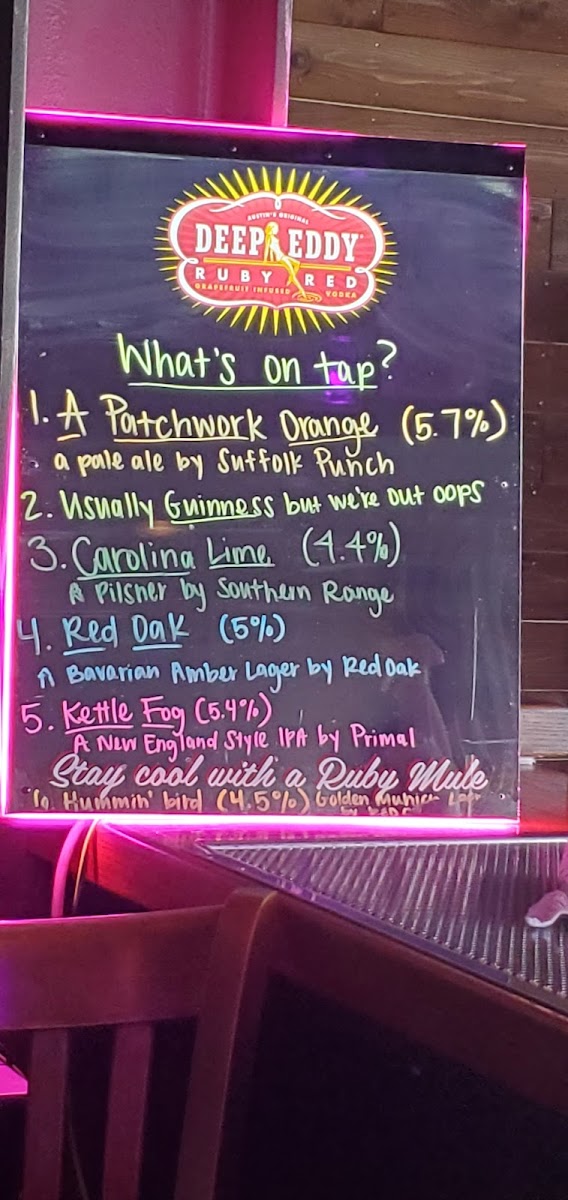 AUSTIN'S ORIGINAL
DEEP EDDY
RUBY RED
GRAPEFRUIT INFUSED VODKA
What's on tap?
1. A Patchwork Orange (5.7%)
a pale ale by Suffolk Punch
2. Usually Guinness but we're out oops
3. Carolina Lime (4.4%)
A Pilsner by Southern Range
4. Red Oak (5%)
A Bavarian Amber Lager by Red Oak
5. Kettle Fog (5.4%)
A New England Style IPA by Primal
Stay cool with a Ruby Mule
Hummin' bird (4.5%) Golden Munich
by